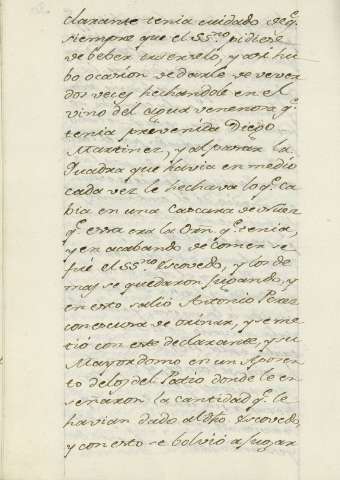 clarante tenia cuidado de q.e
siempre que el SS.rio pidiese
de beber traerselo, y asi hu
bo ocasion de darle de vever
dos veces hechandole en el
vino del agua venenosa q.e
tenia prevenida Diego
Martinez, y al pasar la
Quadra que havia en medio
cada vez le hechava lo q.e ca
bia en una Cascara de Nuez
q.e essa era la Orn. q.e tenia,
y en acabando de Comer se
fué el SS.rio Escovedo, y los de
mas se quedaron jugando, y
en esto salio Antonio Perez
con escusa de orinar, y se me
tió con este declarante, y su
Mayordomo en un Aposen
to delos del Patio donde le en
señaron la cantidad q.e le
havian dado al dho Escovedo,
y con esto se bolvió a jugar